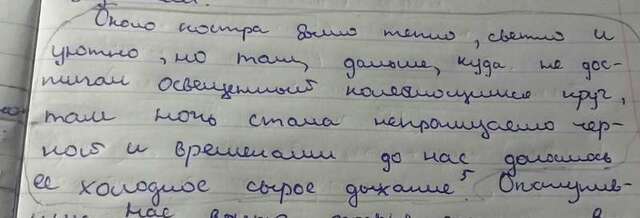 Около костра было тепло, светло и
уютно, но там, дальше, куда не дос-
тигал освещенный колеблющимся круг,
там ночь стала непроницаемо чер-
ной и временами до нас долюсь
ее холодное сырое дыхание⁵. Опанулив-
нас